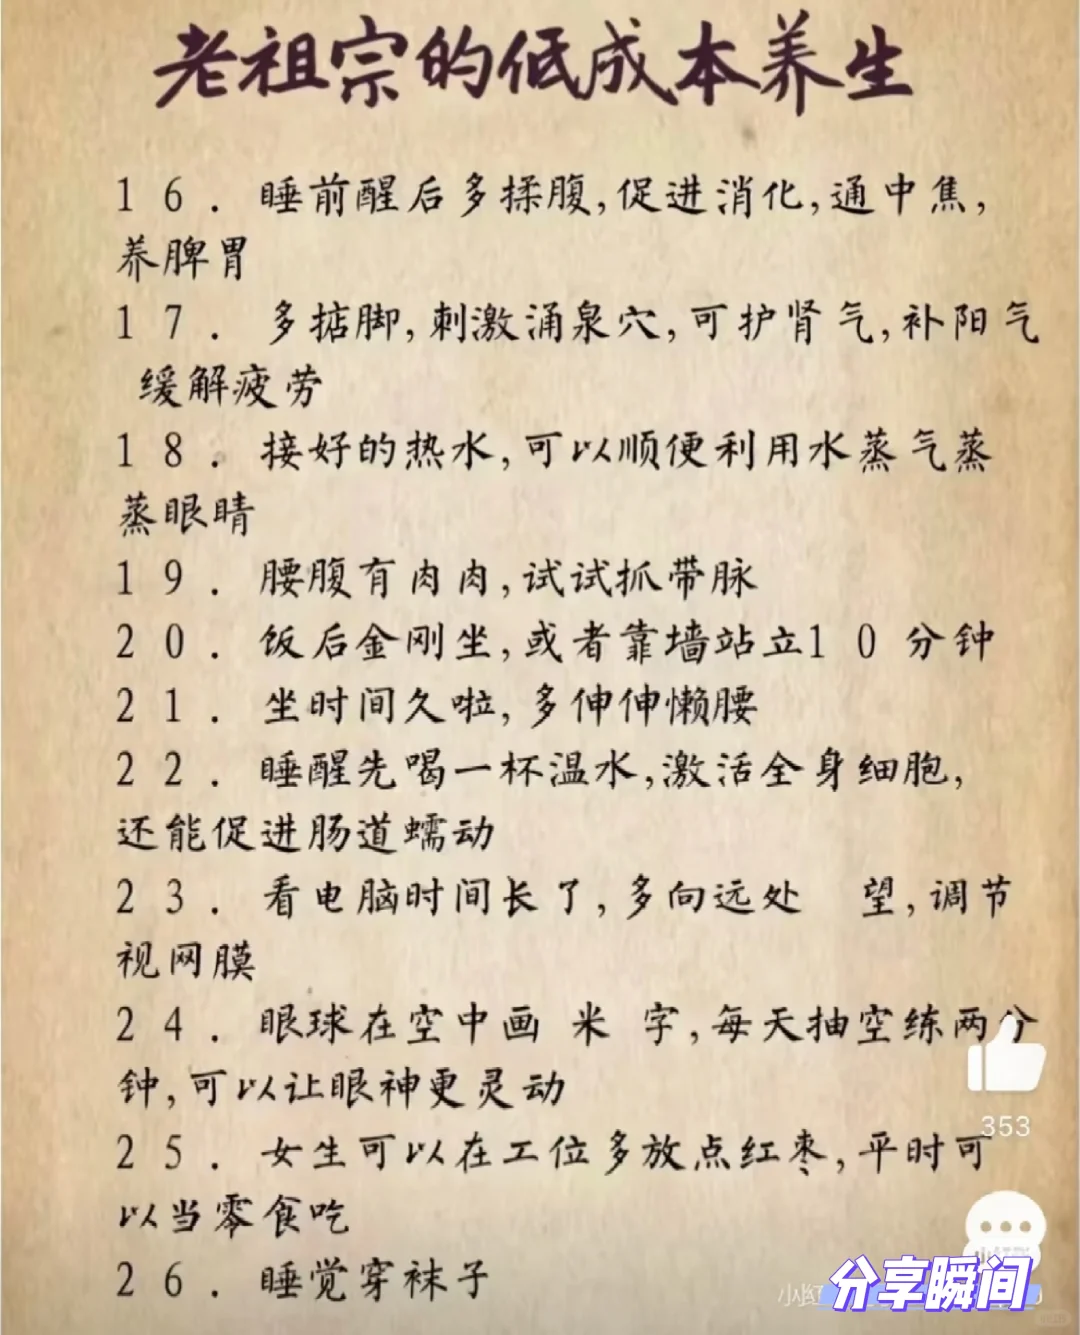 老祖宗的低成本养生
16. 睡前醒后多揉腹,促进消化,通中焦,
养脾胃
17. 多掂脚,刺激涌泉穴,可护肾气,补阳气
缓解疲劳
18. 接好的热水,可以顺便利用水蒸气蒸
蒸眼睛
19. 腰腹有肉肉,试试抓带脉
20. 饭后金刚坐,或者靠墙站立10分钟
21. 坐时间久啦,多伸伸懒腰
22. 睡醒先喝一杯温水,激活全身细胞,
还能促进肠道蠕动
23. 看电脑时间长了,多向远处 望,调节
视网膜
24. 眼球在空中画 米 字,每天抽空练两分
钟,可以让眼神更灵动
353
25. 女生可以在工位多放点红枣,平时可
以当零食吃
26. 睡觉穿袜子
分享瞬间